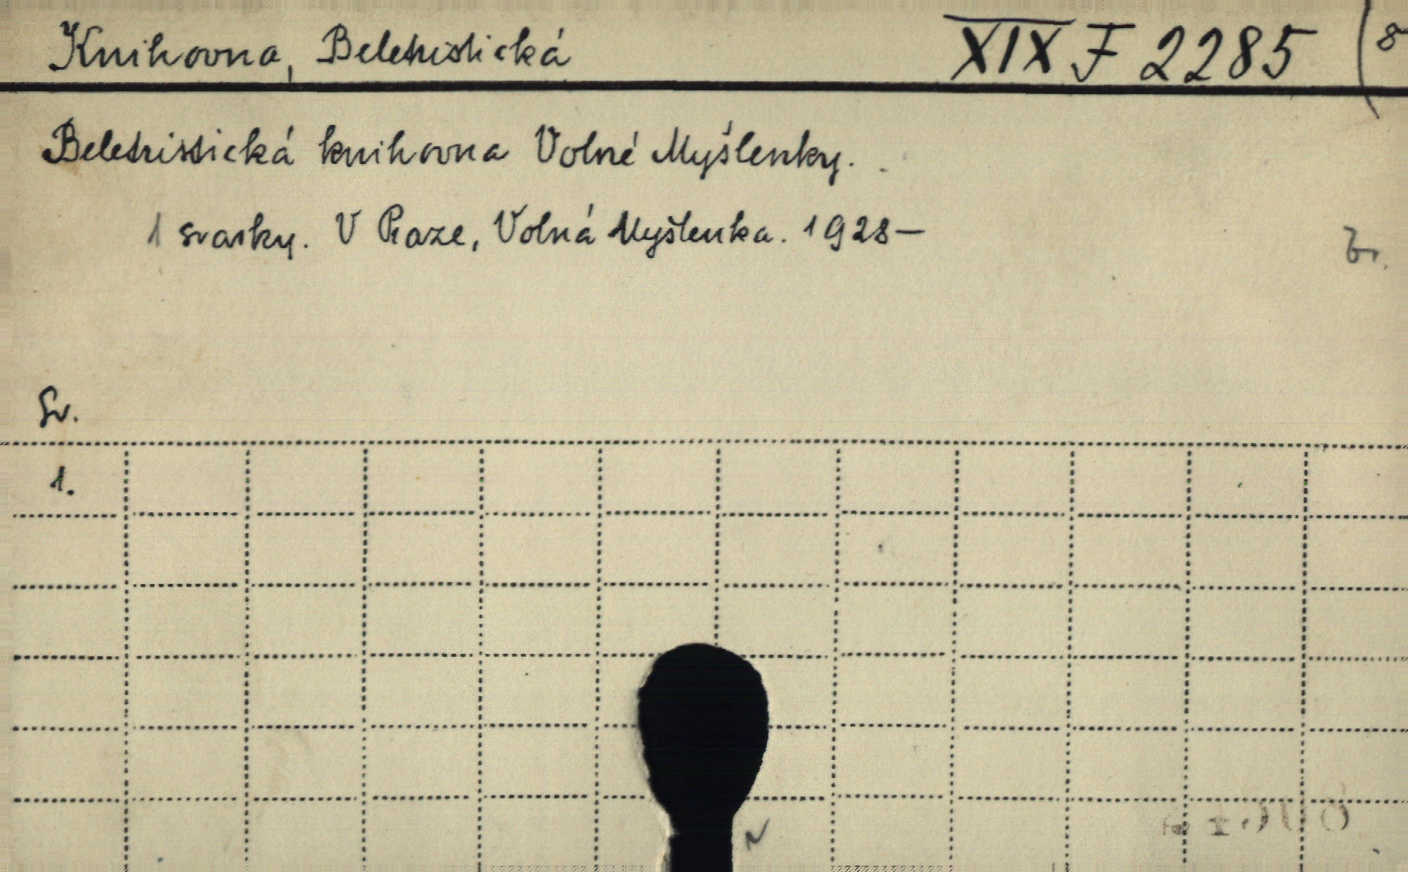 Knihovna, Beletristická XIX F 2285 (8
Beletristická knihovna Volné Myšlenky.
1 svazky. V Praze, Volná Myšlenka. 1928–
br.
Sv.
1.